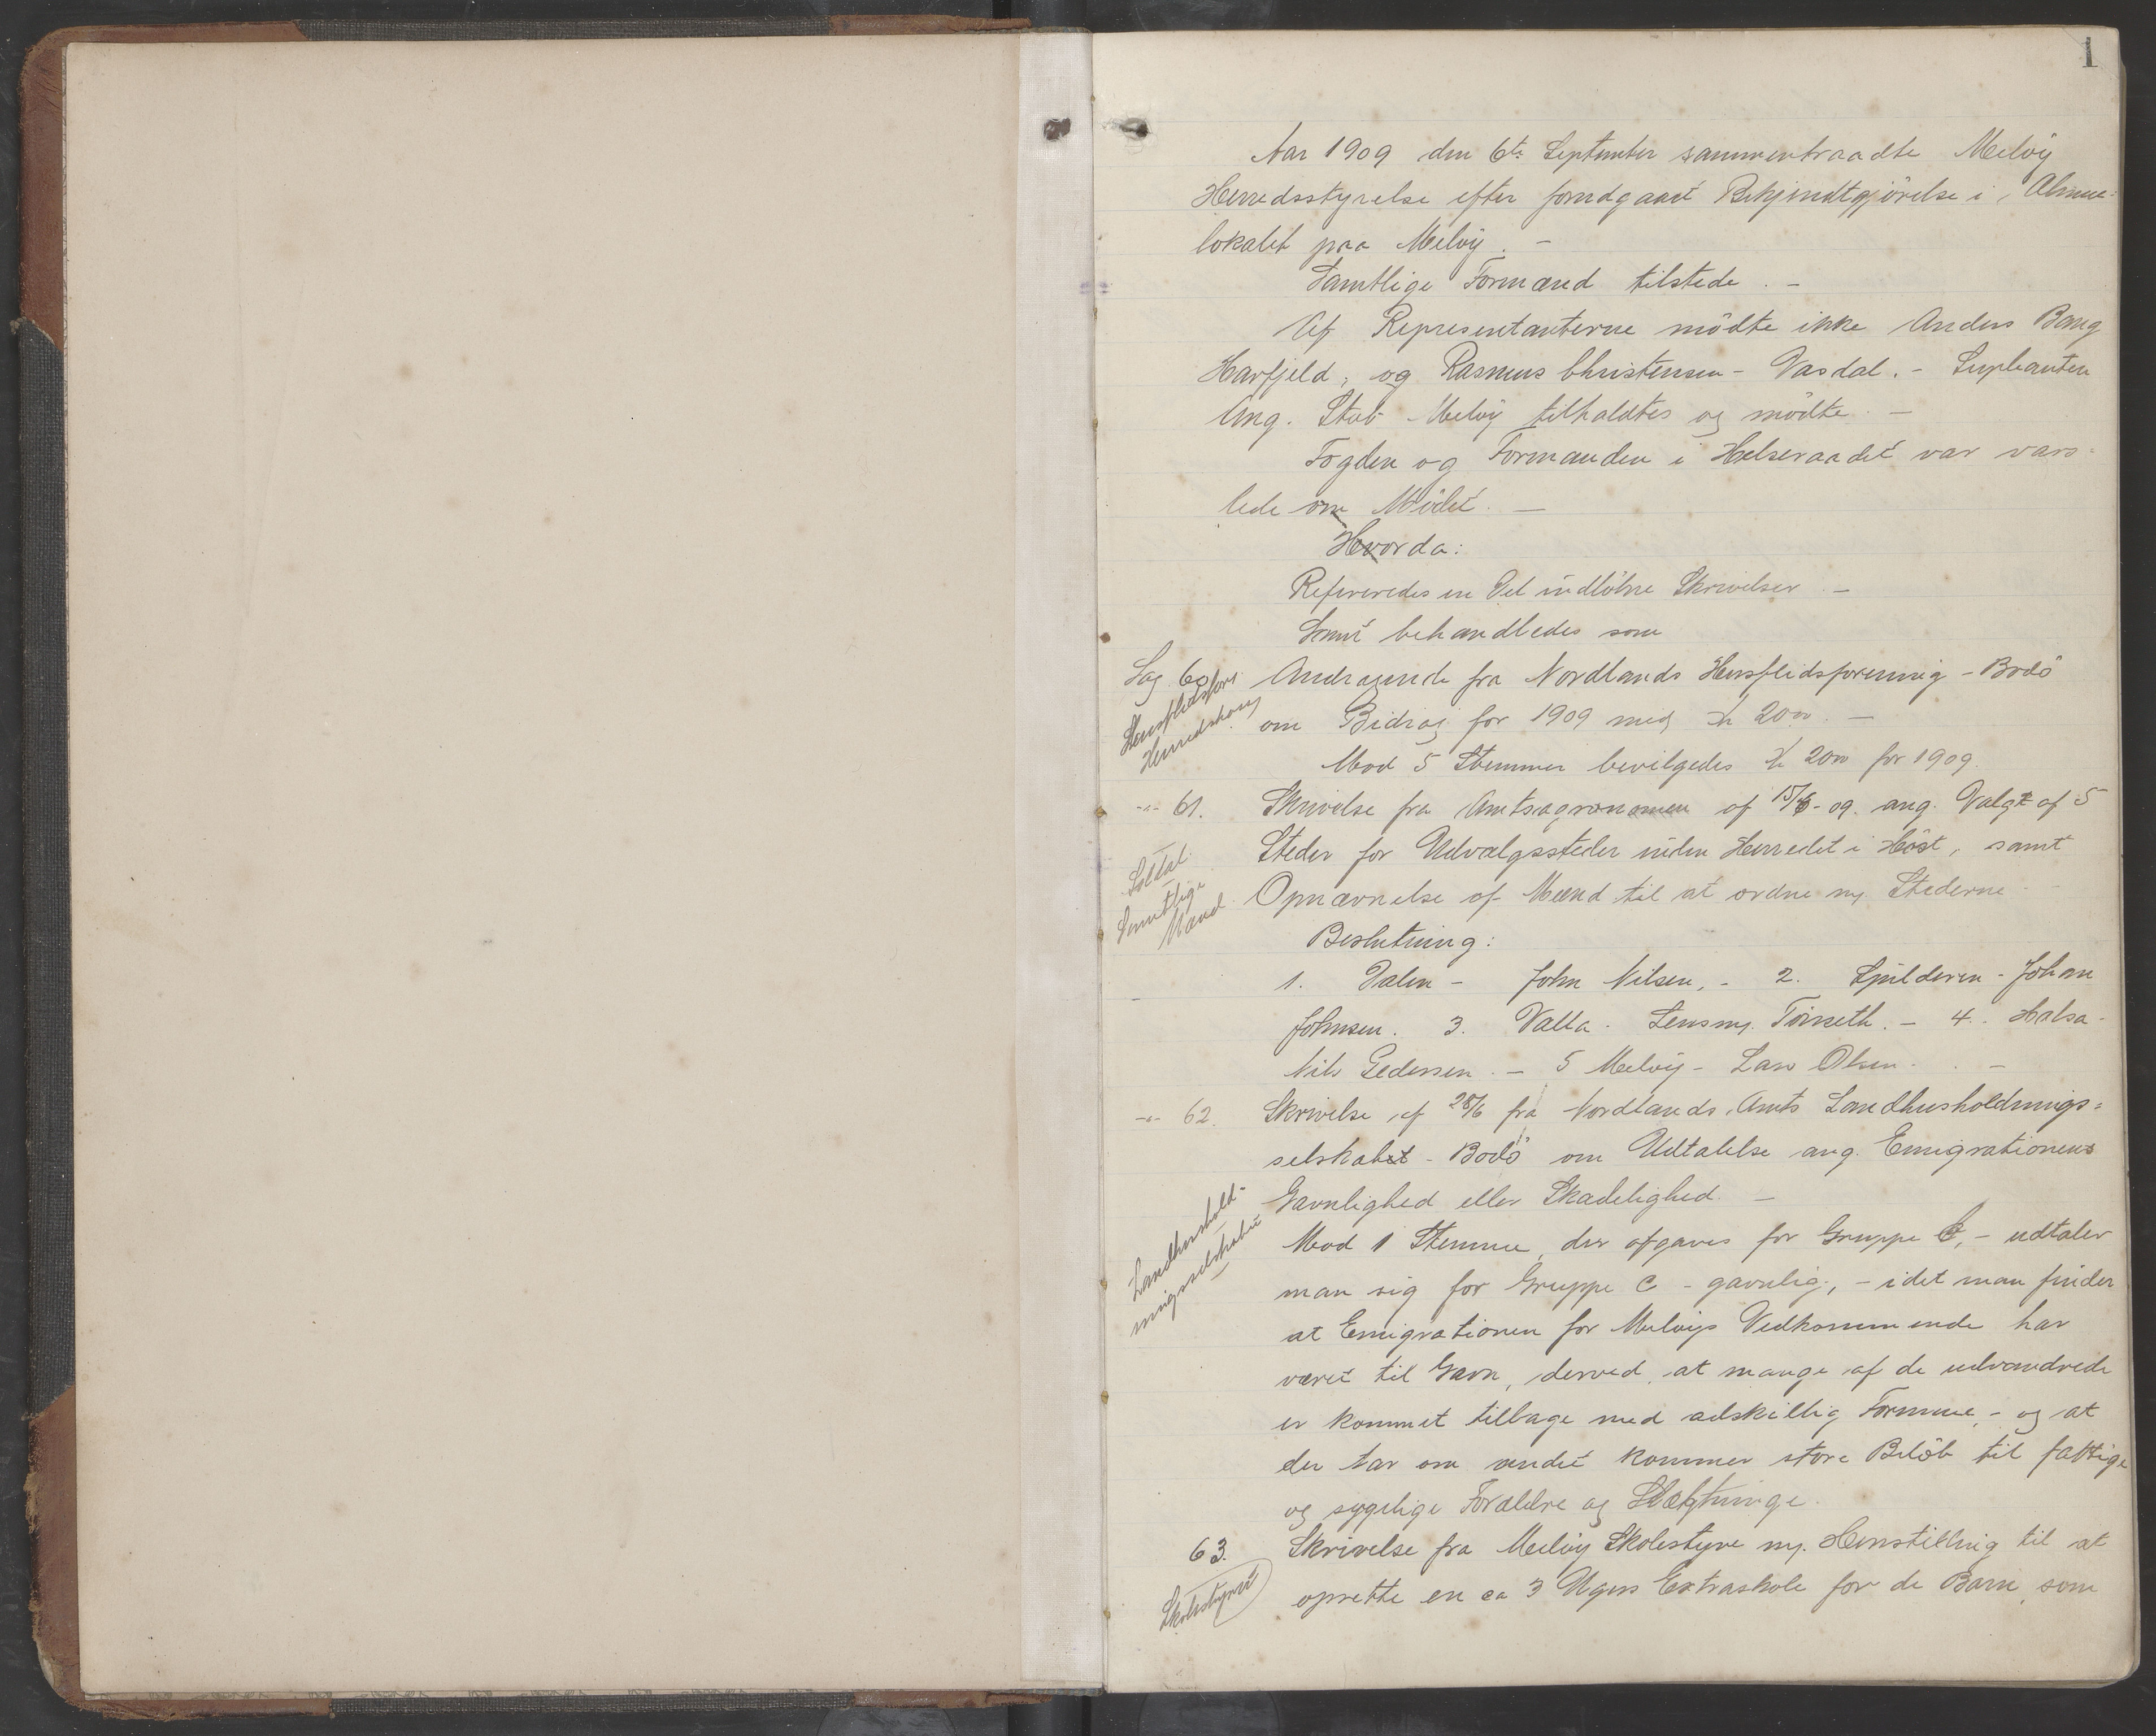 1
Aar 1909 den 6te September sammentraadte Meløy
Herredsstyrelse efter forudgaaet Bekjendtgjørelse i Almue-
lokalet paa Meløy. –
Samtlige Formænd tilstede. –
Af Representanterne mødte ikke Anders Bang
Harfjeld, og Rasmus Christensen – Vasdal. – Supleanten
Ang. Støt Meløy tilkaldtes og mødte. –
Fogden og Formanden i Helseraadet var vars-
lede om Mødet. –
Hvorda:
Refereredes en Del indløbne Skrivelser. –
Samt behandledes som
Sag 60 Andragende fra Nordlands Husflidsforening – Bodø
Husflidsfore
Herredskas
om Bidrag for 1909 med kr 20oo. –
Mod 5 Stemmer bevilgedes kr 20oo for 1909.
-"- 61. Skrivelse fra Amtsagronomen af 15/6-09. ang. Valg af 5
Steder for Udvalgssteder inden Herredet i Høst, samt
Samtlige
Mænd
Opnævnelse af Mænd til at ordne m Stederne
Beslutning:
1. Dalen – John Nilsen, – 2. Spilderen – Johan
Johnsen. 3. Valla. Lensm. – 4. Halsa –
Nils Pedersen. – 5 Meløy – Lars Olsen. –
-"- 62. Skrivelse af 28/6 fra Nordlands Amts Landhusholdnings-
selskabet – Bodø om Udtalelse ang. Emigrationens
Gavnlighed eller Skadelighed. –
Landhushold-
ningsselskabet
Mod 1 Stemme, der afgaves for Gruppe B, – udtaler
man sig for Gruppe C – gavnlig, – idet man finder
at Emigrationen for Meløys Vedkommende har
været til Gavn, derved, at mange af de udvandrede
er kommet tilbage med adskillig Formue, – og at
der Aar om andet kommer store Beløb til fattige
og sygelige Forældre og Slægtninge.
63. Skrivelse fra Meløy Skolestyre m. Henstilling til at
Skolestyret
oprette en ca 3 Ugers Extraskole for de Barn, som